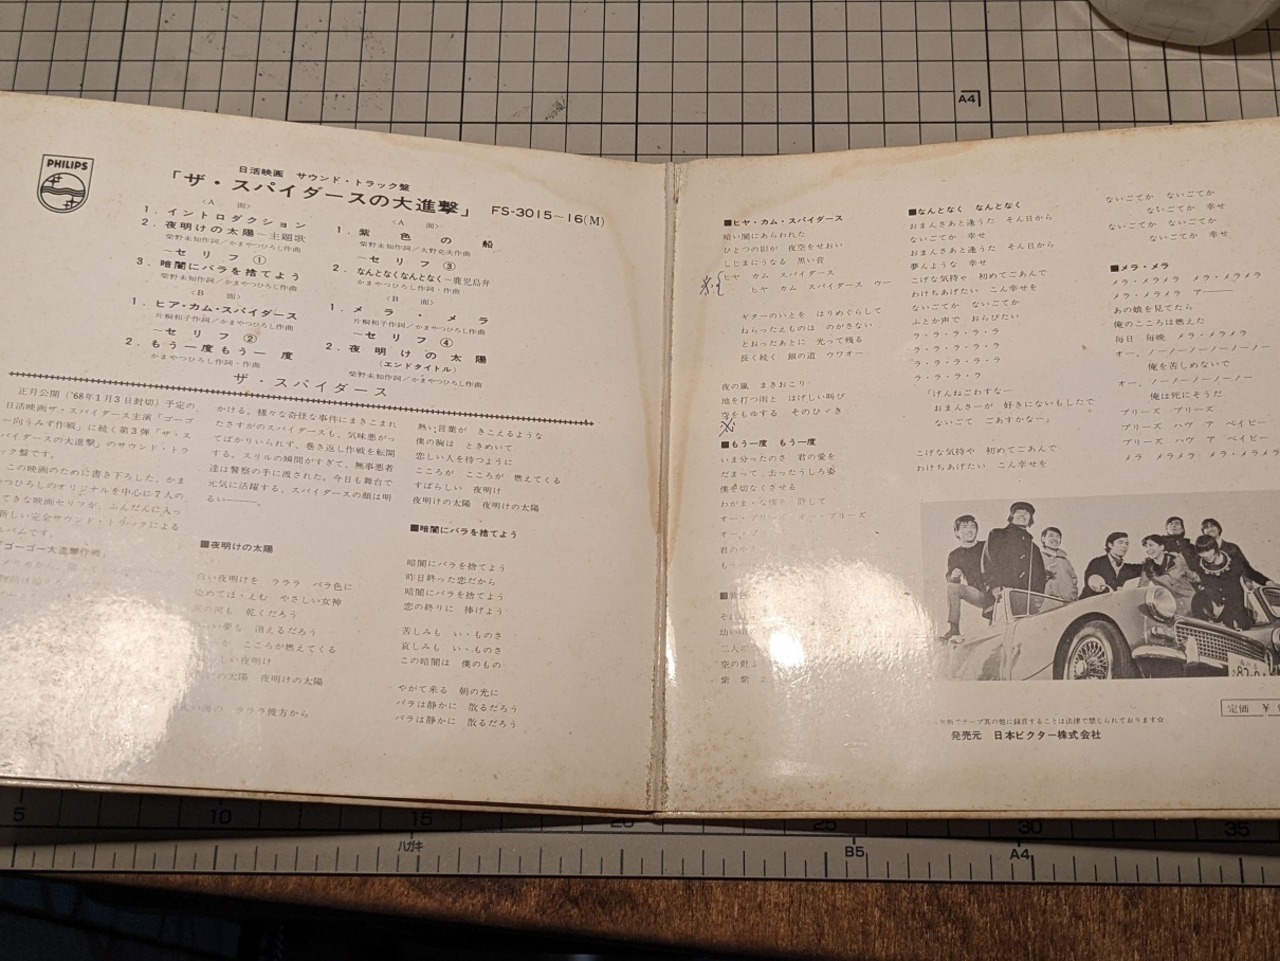 PHILIPS
日活映画 サウンド・トラック盤
「ザ・スパイダースの大進撃」 FS-3015~16(M)
〈A 面〉
1. イントロダクション
2. 夜明けの太陽—主題歌
柴野未知作詞/かまやつひろし作曲
—セリフ①
3. 暗闇にバラを捨てよう
柴野未知作詞/かまやつひろし作曲
〈B 面〉
1. ヒア・カム・スパイダース
—セリフ②
2. もう一度もう一度
かまやつひろし作詞・作曲
〈A 面〉
1. 紫色の船
柴野未知作詞/大野克夫作曲
—セリフ③
2. なんとなくなんとなく—鹿児島弁
かまやつひろし作詞・作曲
〈B 面〉
1. メラ・メラ
片桐和子作詞/かまやつひろし作曲
—セリフ④
2. 夜明けの太陽
(エンドタイトル)
柴野未知作詞/かまやつひろし作曲
ザ・スパイダース
正月公開('68年1月3日封切)予定の
日活映画ザ・スパイダース主演「ゴーゴ
ー向うみず作戦」に続く第3弾「ザ・ス
パイダースの大進撃」のサウンド・トラ
ック盤です。
この映画のために書き下ろした、かま
やつひろしのオリジナルを中心に7人の
てきな映画セリフが、ふんだんに入っ
新しい完全サウンド・トラックによる
ルバムです。
「ゴーゴー大進撃作戦」
かける。様々な奇怪な事件にまきこまれ
たさすがのスパイダースも、気味悪がっ
てばかりいられず、巻き返し作戦を転開
する。スリルの瞬間がすぎて、無事悪者
達は警察の手に渡された。今日も舞台で
元気に活躍する、スパイダースの顔は明
るい———
■夜明けの太陽
白い夜明けを ラララ バラ色に
染めてほゝえむ やさしい女神
の河も 乾くだろう
い夢も 消えるだろう
が こころが燃えてくる
しい夜明け
の太陽 夜明けの太陽
ラララ彼方から
熱い言葉が きこえるような
僕の胸は ときめいて
恋しい人を待つように
こころが こころが 燃えてくる
すばらしい 夜明け
夜明けの太陽 夜明けの太陽
■暗闇にバラを捨てよう
暗闇にバラを捨てよう
昨日終った恋だから
暗闇にバラを捨てよう
恋の終りに 捧げよう
苦しみも いゝものさ
哀しみも いゝものさ
この暗闇は 僕のもの
やがて来る 朝の光に
バラは静かに 散るだろう
バラは静かに 散るだろう
■ヒヤ・カム・スパイダース
暗い闇にあらわれた
ひとつの影が 夜空をせおい
しじまにうなる 黒い音
ヒヤ カム スパイダース
ヒヤ カム スパイダース ウー
ギターのいとを はりめぐらして
ねらったえものは のがさない
とおったあとに 光って残る
長く続く 銀の道 ウワオー
夜の嵐 まきおこり
地を打つ雨と はげしい叫び
空をもゆする そのひゞき
■もう一度 もう一度
いま分ったのさ 君の愛を
だまって 去ったうしろ姿
僕を切なくさせる
わがまゝな僕を 許して
オー・プリーズ オー・プリーズ
■なんとなく なんとなく
おまんさあと逢うた そん日から
ないごてか 幸せ
おまんさあと逢うた そん日から
夢んような 幸せ
こげな気持や 初めてごあんで
わけちあげたい こん幸せを
ないごてか ないごてか
ふとか声で おらびたい
ラ・ラ・ラ・ラ・ラ
ラ・ラ・ラ・ラ・ラ
ラ・ラ・ラ・ラ・ラ
ラ・ラ・ラ・ラ
「げんねごわすなー
おまんさーが 好きにないもしたで
ないごて ごあすかなー」
こげな気持や 初めてごあんで
わけちあげたい こん幸せを
ないごてか ないごてか
ないごてか 幸せ
ないごてか ないごてか
ないごてか 幸せ
■メラ・メラ
メラ・メラメラ メラ・メラメラ
メラ・メラメラ アー——
あの娘を見てたら
俺のこころは燃えた
毎日 毎晩 メラ・メラメラ
オー、ノーノーノーノーノーノー
俺を苦しめないで
オー、ノーノーノーノーノー
俺は死にそうだ
プリーズ プリーズ
プリーズ ハヴ ア ベイビー
プリーズ ハヴ ア ベイビー
メラ メラメラ メラ・メラメラ
定価 ¥
無断でテープ其の他に録音することは法律で禁じられております☆
発売元 日本ビクター株式会社
A4
5 10 15 20 25 30 35
ハガキ B5 A4